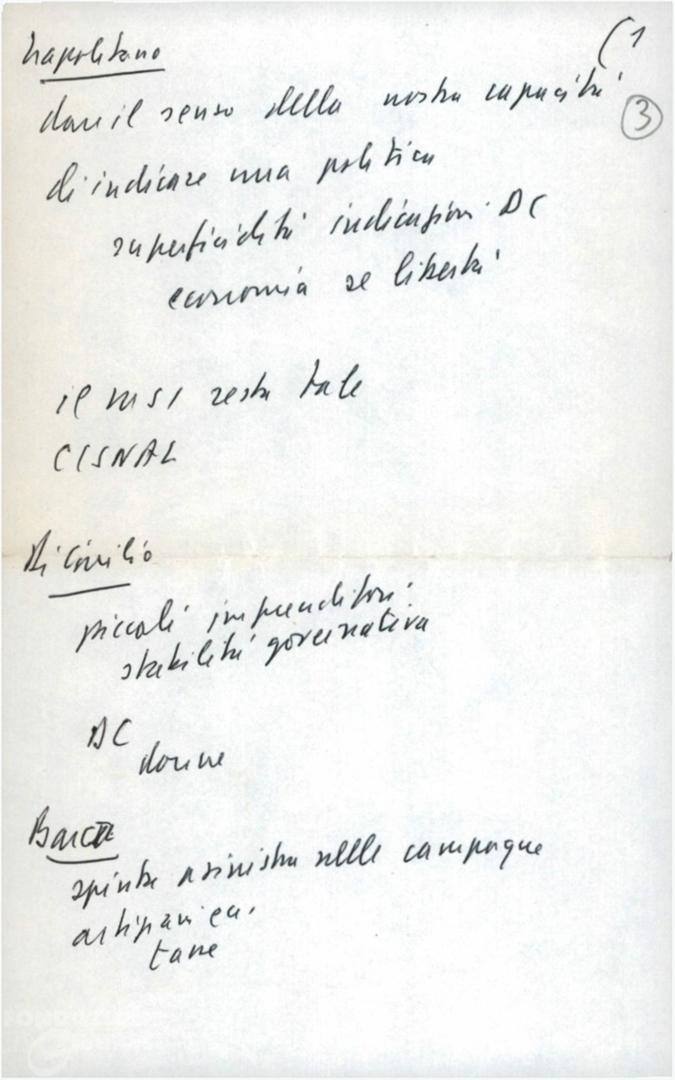 (1
3
Napolitano
dare il senso della nostra capacità
di indicare una politica
superficialità indicazioni DC
economia se libertà
il MSI resta tale
CISNAL
Di Giulio
piccoli imprenditori
stabilità governativa
DC
donne
Barca
spinta a sinistra nelle campagne
artigiani ecc.